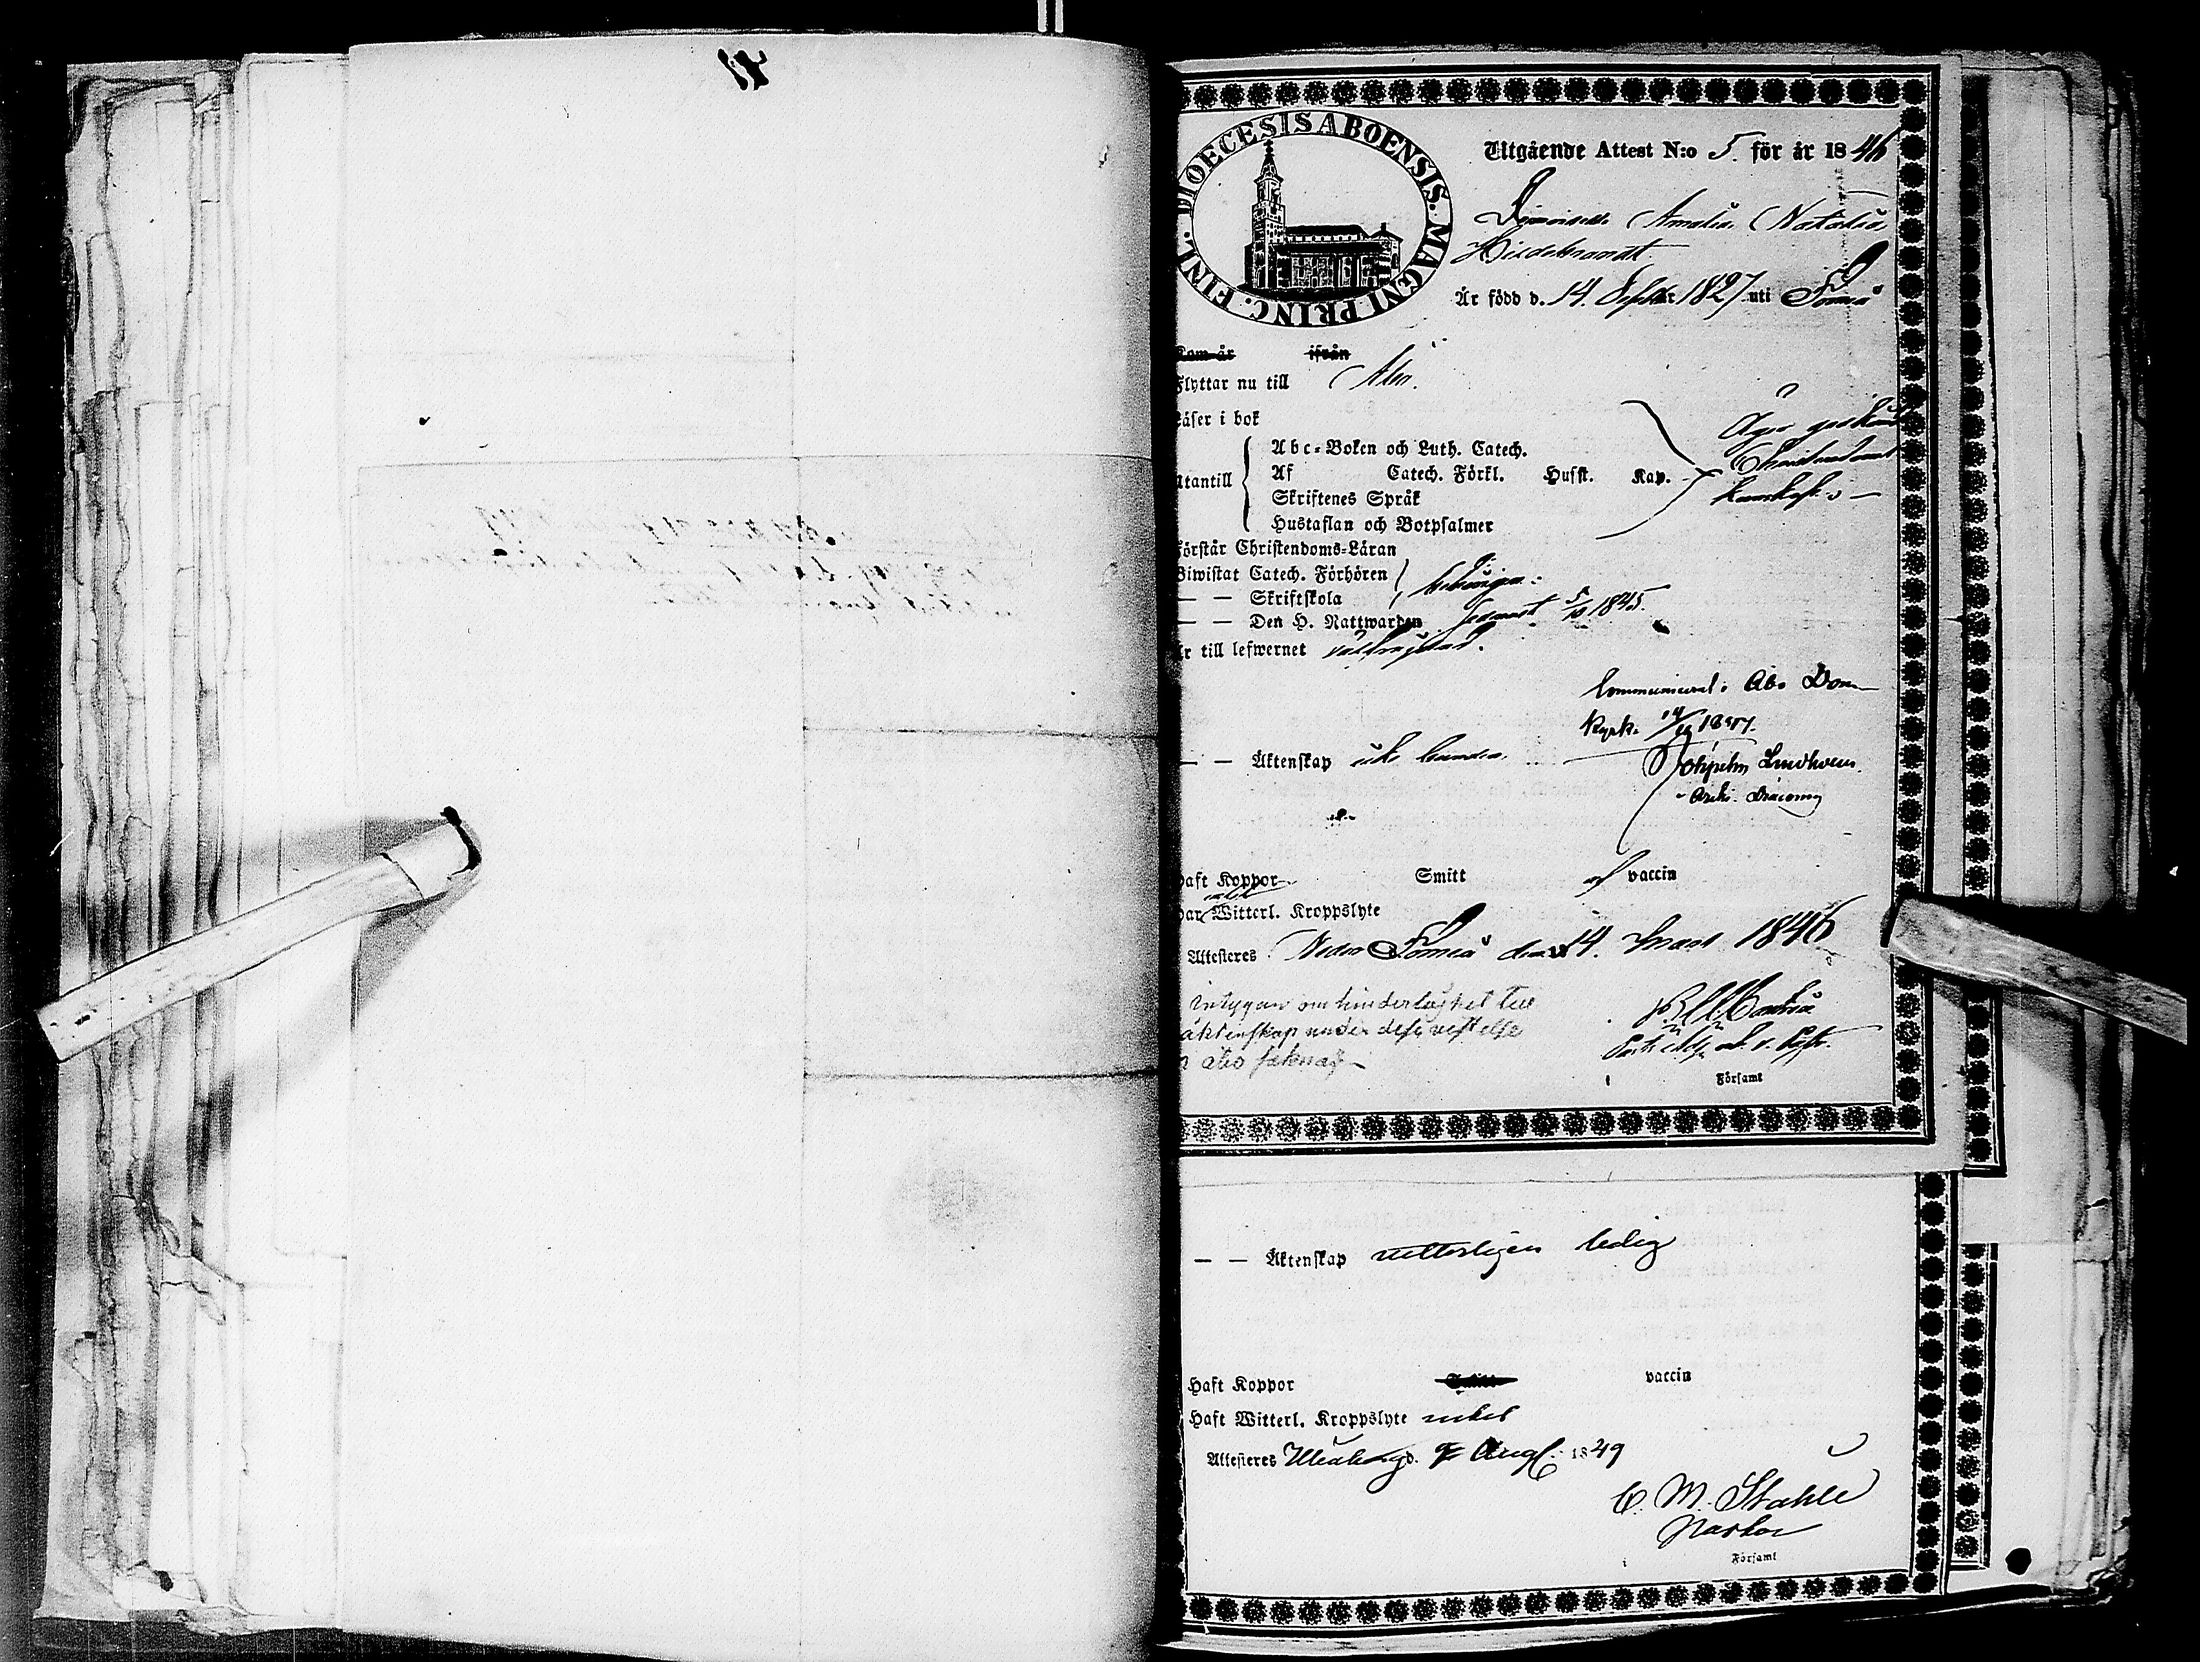 DIOECESIS ABOENSIS. MAGNI PRINC. FINL.
Utgående Attest N:o 5. för år 1846
Demoiselle Amalia Natalia
Hildebrandt
Är född d. 14. Septbr 1827 uti Torneå
Kom år ifrån
Flyttar nu till Åbo.
Läser i bok
Abc-Boken och Luth. Catech.
Utantill Af Catech. Förkl. Hufst. Kap.
Skriftenes Språk
Hustaflan och Botpsalmer
Äger god
Christendoms
kunskap
Förstår Christendoms-Läran
Biwistat Catech. Förhören
— — Skriftskola
— — Den H. Nattwarden senast 5/10 1845.
Är till lefwernet välfrejdad.
Communicerat i Åbo Dom
Kyrk.
Lindholm
Archi. Diaconus
— — Äktenskap icke bunden.
Haft Koppor Smitt af vaccin
Har Witterl. Kroppslyte intet
Attesteras Neder Torneå den 14. Mars 1846
intygan om hinderlöshet till
äktenskap under dess vistelse
i åbo saknas
Församl
— — Äktenskap vetterligen ledig
Haft Koppor vaccin
Haft Witterl. Kroppslyte intet
Attesteres Uleåborg d. 9 Aug. 1849
C. M. Stahle
Pastor
Församl